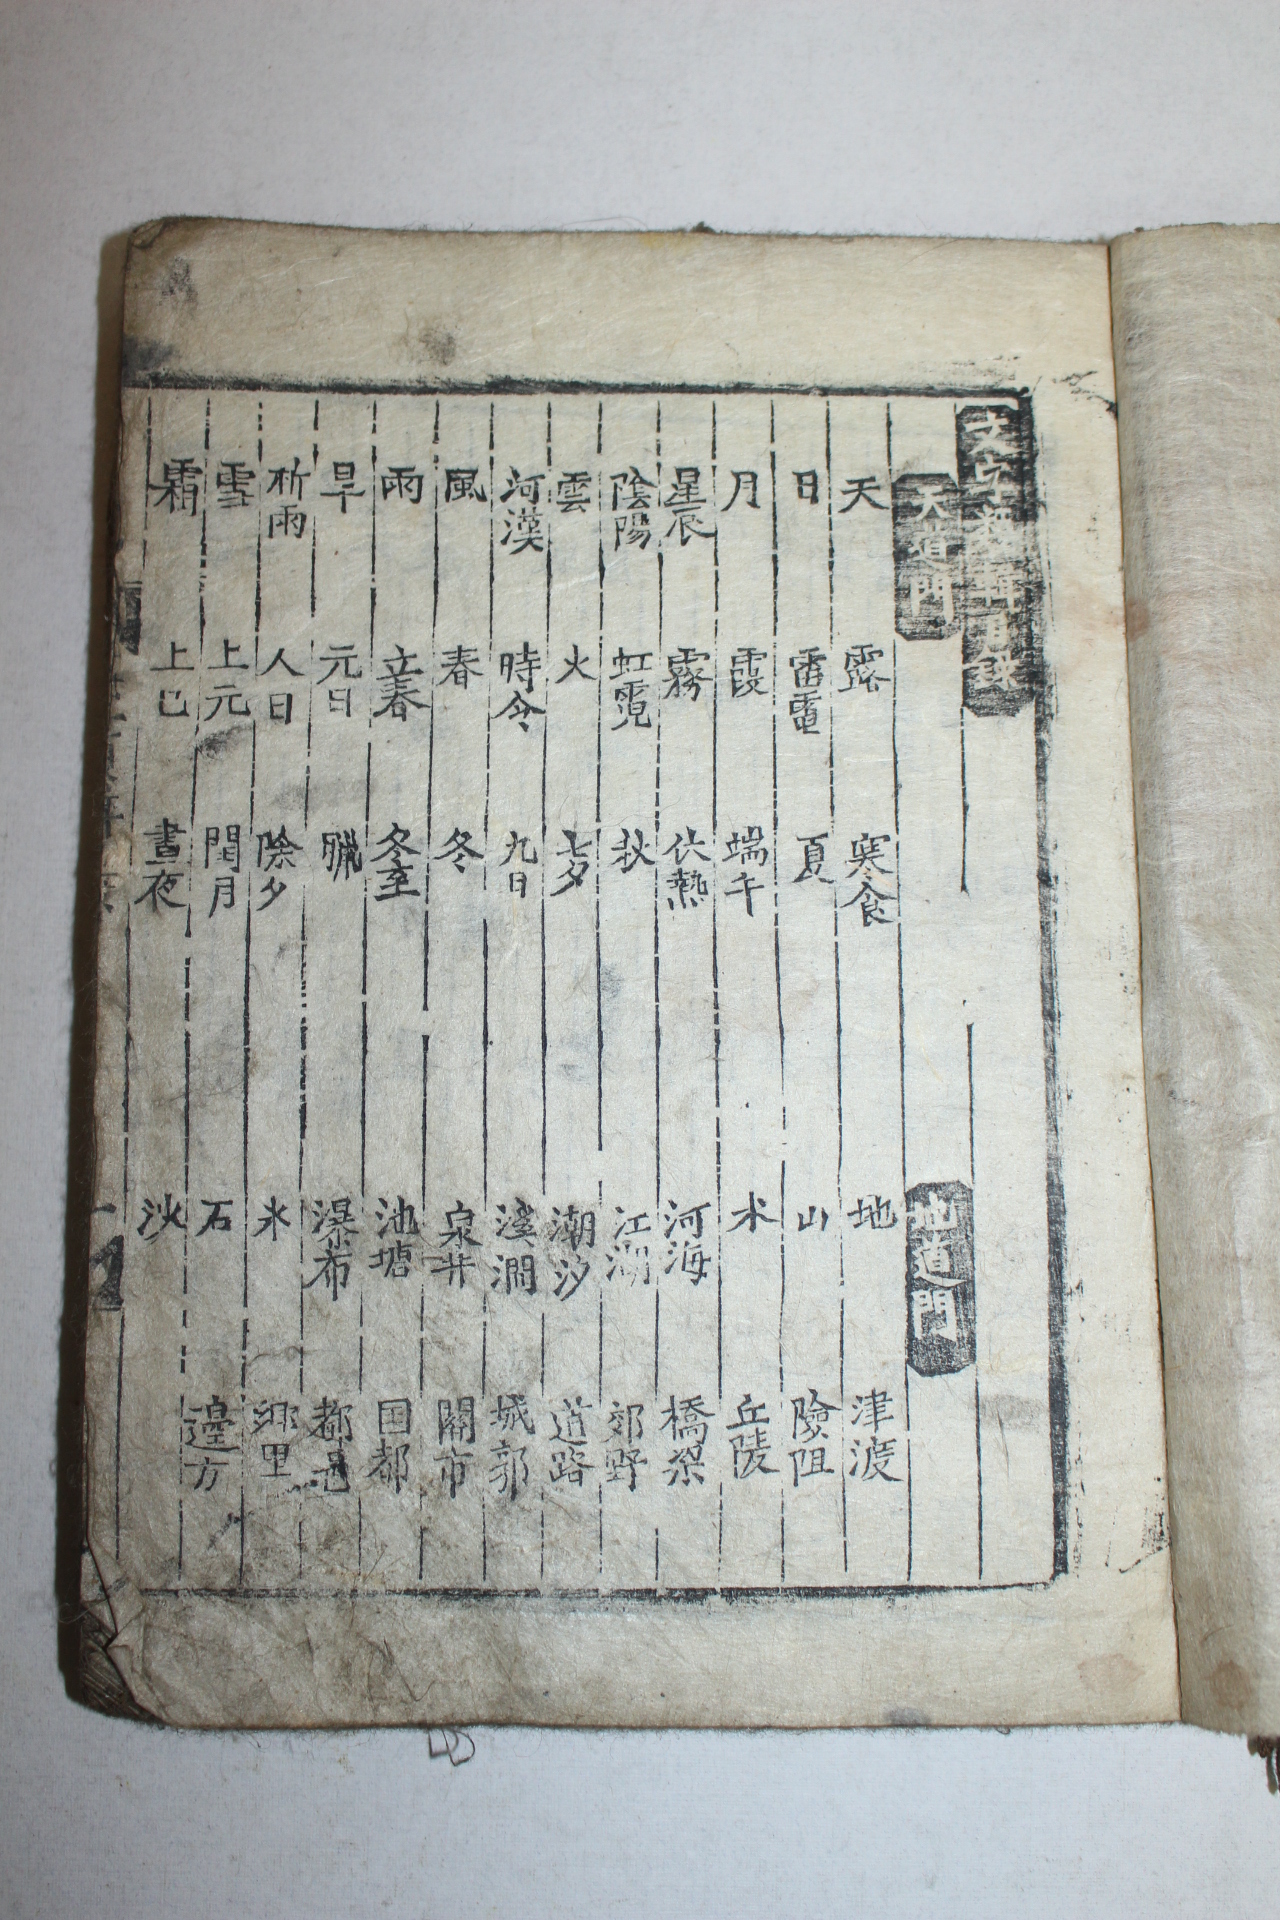 文字類輯目錄
天道門 地道門
天 露 寒食 地 津渡
日 雷電 夏 山 險阻
月 霞 端午 水 丘陵
星辰 霧 伏熱 河海 橋梁
陰陽 虹霓 秋 江湖 郊野
雲 火 七夕 潮汐 道路
河漢 時令 九日 溪澗 城郭
風 春 冬 泉井 關市
雨 立春 冬至 池塘 国都
旱 元日 臘 瀑布 都邑
祈雨 人日 除夕 氷 鄕里
雪 上元 閏月 石 邊方
霜 上巳 晝夜 沙